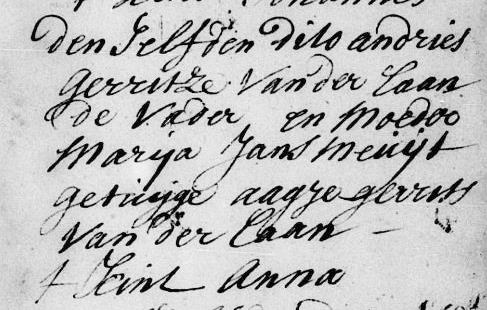 den Selfden dito andries
gerritze Van der laan
de Vader en Moeder
Marija Jans
getuijge aagje gerrits
Van der laan –
t Kint Anna